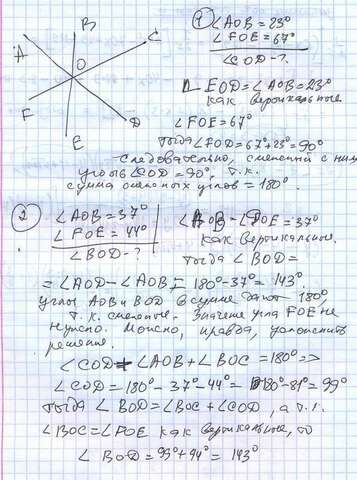 B
C
A
O
F
D
E
① ∠AOB = 23°
∠FOE = 67°
∠COD - ?
∠EOD = ∠AOB = 23°
как вертикальные.
∠FOE = 67°
тогда ∠FOD = 67° + 23° = 90°
следовательно, смежный с ним
угол ∠COD = 90°, т.к.
сумма смежных углов = 180°.
② ∠AOB = 37°
∠FOE = 44°
∠BOD - ?
∠AOB = ∠DOE = 37°
как вертикальн.
тогда ∠BOD =
= ∠AOD - ∠AOB = 180° - 37° = 143°.
углы AOB и BOD в сумме дают 180°,
т.к. смежные. Значение угла FOE не
нужно. Можно, правда, усложнить
решение.
∠COD + ∠AOB + ∠BOC = 180° =>
∠COD = 180° - 37° - 44° = 180° - 81° = 99°
тогда ∠BOD = ∠BOC + ∠COD, а т.к.
∠BOC = ∠FOE как вертикальные, то
∠BOD = 99° + 44° = 143°